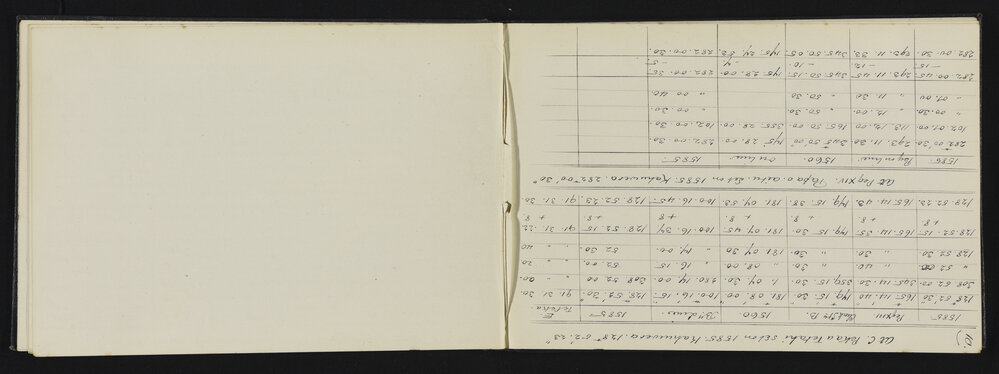 10.)
At C. Poka a Tetahi set on 1585 Kahuwera. 128° 52' 23"
1585 Peg XIII Old Stn B. 1560 Bdy lines. 1585
128° 52' 30" 165 14 40 149 15 30 181 08 00 100 16 15 128 52 30 91 31 30
308 52 00 345 14 30 359 15 30 1 07 30 280 14 00 308 52 00 " " 00
" 52 00 " 40 " 30 " 08 00 " 16 15 " 52 00 " " 20
128 52 30 " " 30 " 30 181 07 30 " 14 00 52 30 " " 40
128.52.15 165.14.35 149.15.30 181 07 45 100.16.37 128.52.15 91 31 22
+ 8 + 8 + 8 + 8 + 8 + 8 + 8
128.52.23. 165.14.43. 149.15.38. 181.07.53. 100.16.45. 128.52.23 91.31.30
At Peg XIV. Papa o autu Set on 1585 Kahuwera. 282° 00' 30"
1585 Peg on line 1560 on line 1585
282° 00' 30" 293. 11. 30 345° 50' 00" 175 28. 00 282. 00. 30
102. 01. 00 113. 12. 00 165. 50. 00 355. 28. 00 102. 00. 30
" 00. 30 " 12. 00 " 50. 30 " 00. 30
" 01. 00 " 11. 30 " 50. 30 " 00. 40
282. 00. 45 293. 11. 45 345. 50. 15 175. 28. 00 282. 00. 35
- 15 - 12 - 10 - 7 - 5
282. 00. 30 293. 11. 33 345. 50. 05. 175. 27. 53. 282. 00. 30.